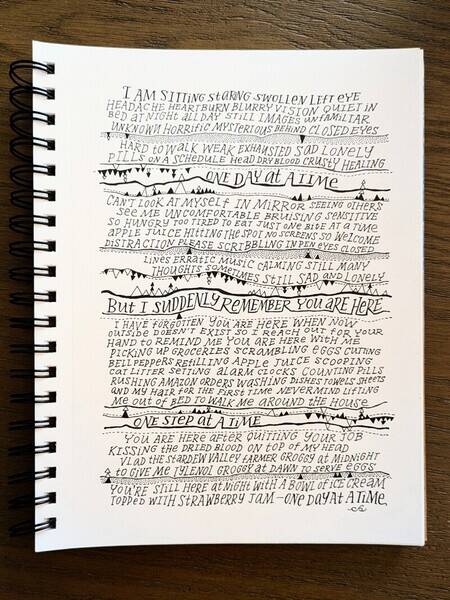 I AM SITTING STARING SWOLLEN LEFT EYE
HEADACHE HEARTBURN BLURRY VISION QUIET IN
BED AT NIGHT ALL DAY STILL IMAGES UNFAMILIAR
UNKNOWN HORRIFIC MYSTERIOUS BEHIND CLOSED EYES
HARD TO WALK WEAK EXHAUSTED SAD LONELY
PILLS ON A SCHEDULE HEAD DRY BLOOD CRUSTY HEALING
ONE DAY AT A TIME
CAN'T LOOK AT MYSELF IN MIRROR SEEING OTHERS
SEE ME UNCOMFORTABLE BRUISING SENSITIVE
SO HUNGRY TOO TIRED TO EAT JUST ONE BITE AT A TIME
APPLE JUICE HITTING THE SPOT NO SCREENS SO WELCOME
DISTRACTION PLEASE SCRIBBLING IN PEN EYES CLOSED
LINES ERRATIC MUSIC CALMING STILL MANY
THOUGHTS SOMETIMES STILL SAD AND LONELY
BUT I SUDDENLY REMEMBER YOU ARE HERE
I HAVE FORGOTTEN YOU ARE HERE WHEN NOW
OUTSIDE DOESN'T EXIST SO I REACH OUT FOR YOUR
HAND TO REMIND ME YOU ARE HERE WITH ME
PICKING UP GROCERIES SCRAMBLING EGGS CUTTING
BELL PEPPERS REFILLING APPLE JUICE SCOOPING
CAT LITTER SETTING ALARM CLOCKS COUNTING PILLS
RUSHING AMAZON ORDERS WASHING DISHES TOWELS SHEETS
AND MY HAIR FOR THE FIRST TIME NEVERMIND LIFTING
ME OUT OF BED TO WALK ME AROUND THE HOUSE
ONE STEP AT A TIME
YOU ARE HERE AFTER QUITTING YOUR JOB
KISSING THE DRIED BLOOD ON TOP OF MY HEAD
VLAD THE STARDEW VALLEY FARMER GROGGY AT MIDNIGHT
TO GIVE ME TYLENOL GROGGY AT DAWN TO SERVE EGGS
YOU'RE STILL HERE AT NIGHT WITH A BOWL OF ICE CREAM
TOPPED WITH STRAWBERRY JAM—ONE DAY AT A TIME